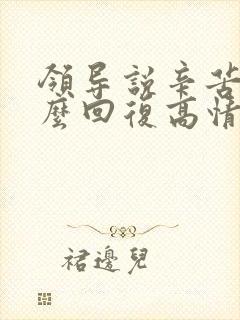 领导說辛苦
麽回復高情
裙邊兒